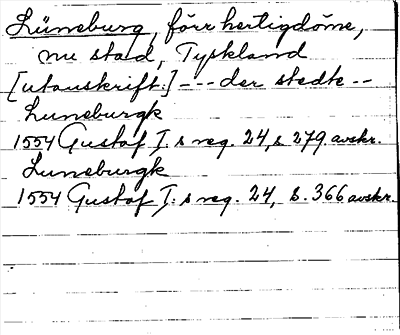 Lüneburg, förr hertigdöme,
nu stad, Tyskland
[utanskrift:] --- der stedte --
Luneburgk
1554 Gustaf I:s reg. 24, s. 279 avskr.
Luneburgk
1554 Gustaf I:s reg. 24, s. 366 avskr.